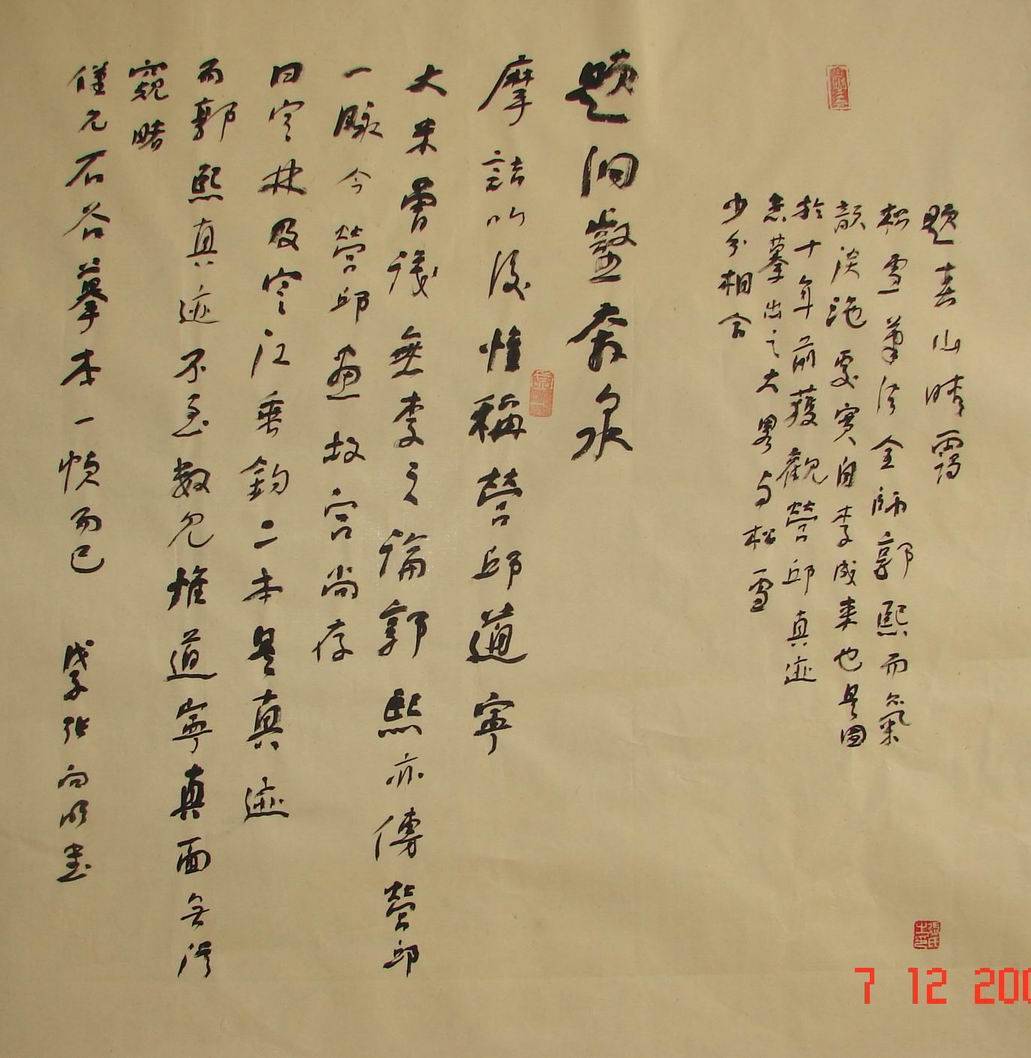 题春山晴靄
松雪筆法全師郭熙而氣
韻淡沲處實自李成來也是图
於十年前獲觀營邱真迹
意摹出之大畧与松雪
少分相合
题洞壑奔泉
摩詰以後惟稱營邱道寧
大米曾深無李之論郭熙亦傳營邱
一脉今營邱畫故宫尚存
曰寒林及寒江垂釣二本是真迹
而郭熙真迹不至数见惟道寧真面無從
窺睹
僅见石谷摹本一幀而已 戊子张向明書
7 12 200